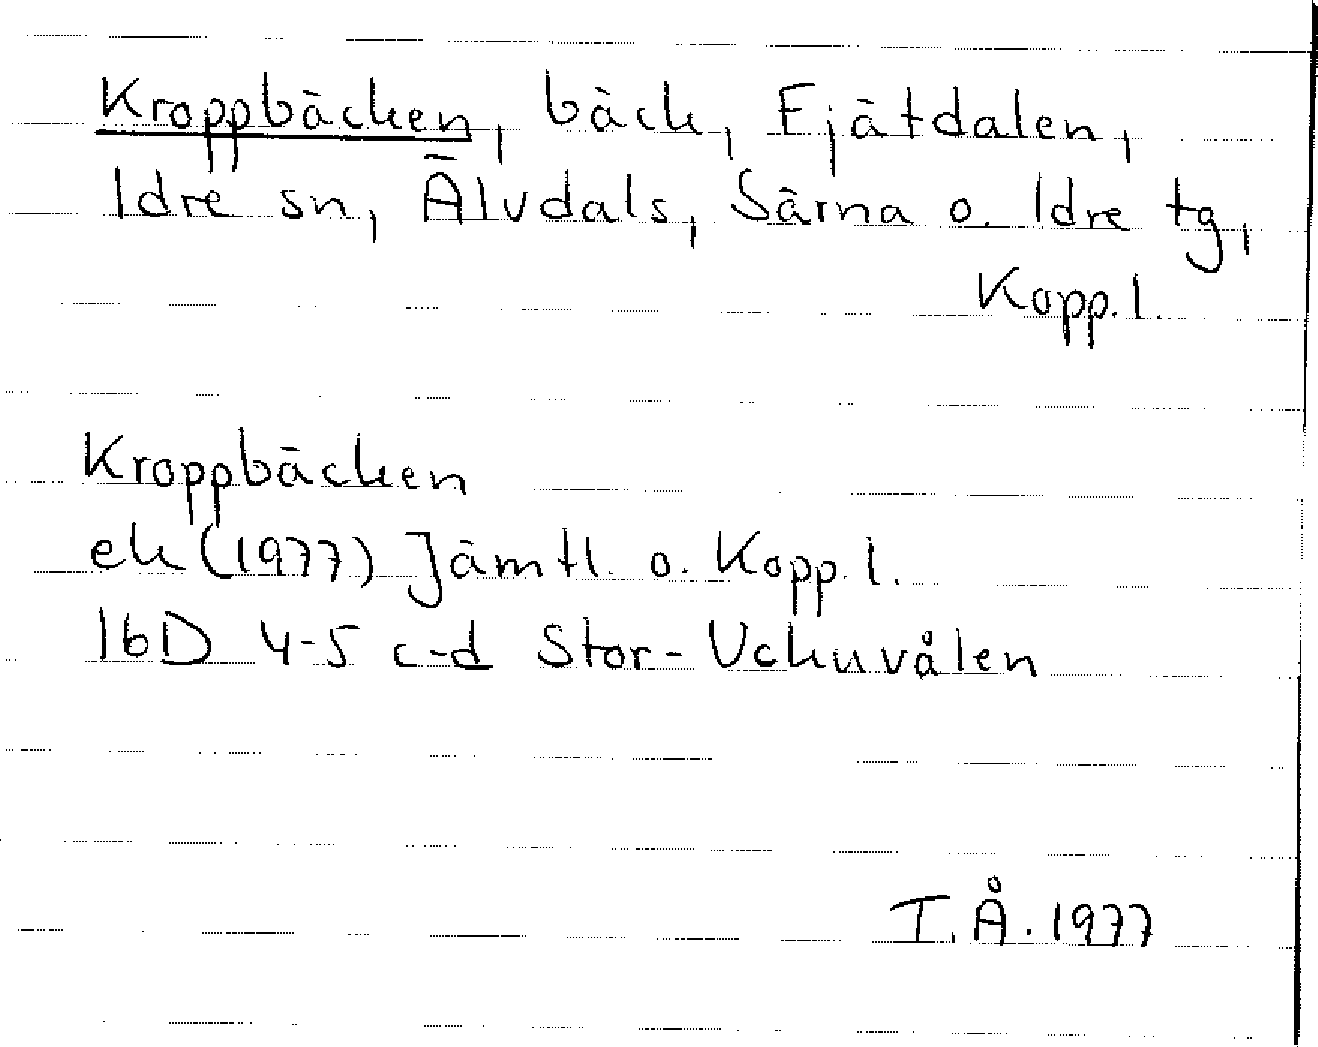 Kroppbäcken, bäck, Fjätdalen,
Idre sn, Älvdals, Särna o. Idre tg,
Kopp. l.
Kroppbäcken
ek (1977) Jämtl. o. Kopp. l.
16D 4-5 c-d Stor-Uckuvålen
I.Å. 1977